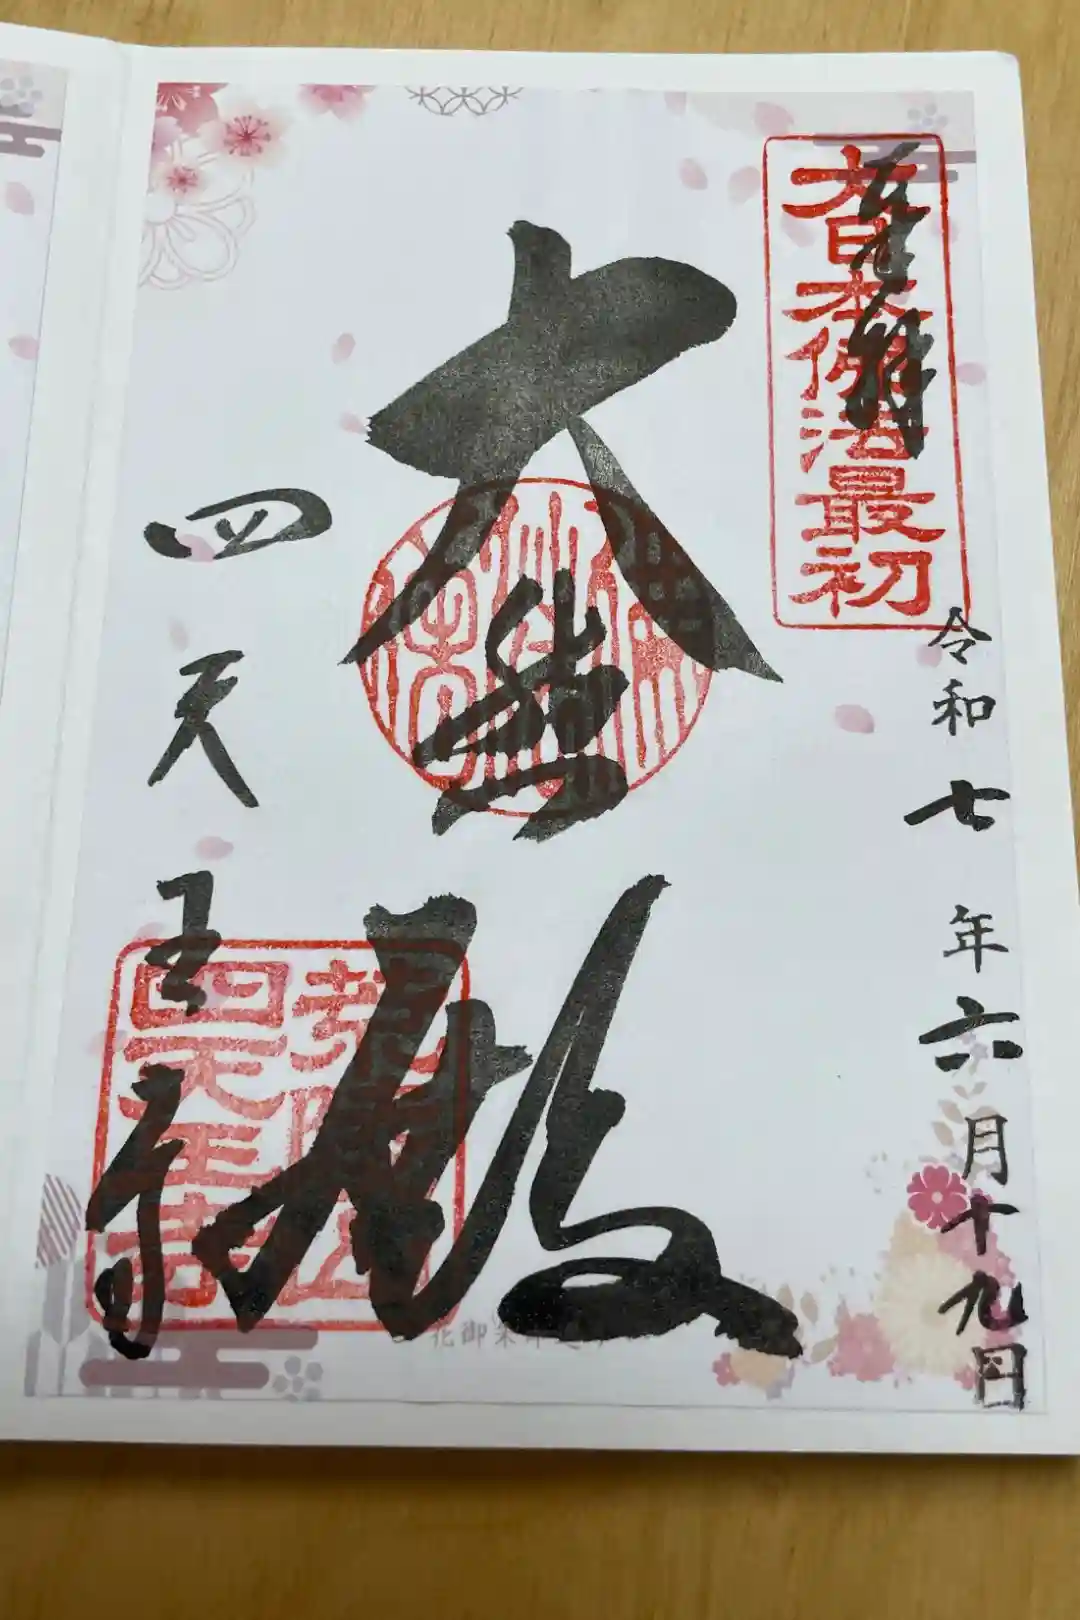 奉拝
大日本佛法最初
令和七年六月十九日
大悲殿
四天王寺
荒陵山
四天王寺